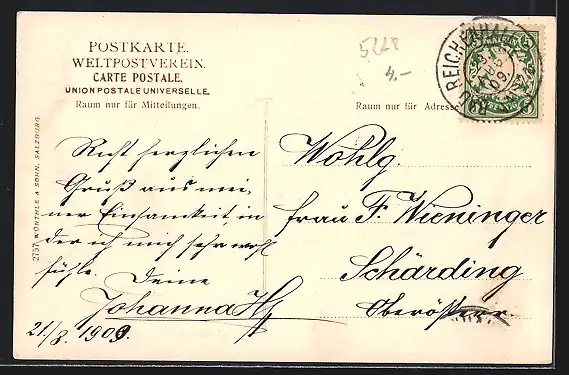 POSTKARTE.
WELTPOSTVEREIN.
CARTE POSTALE.
UNION POSTALE UNIVERSELLE.
Raum nur für Mitteilungen.
Raum nur für Adresse
5228
4.-
REICHENHALL
BAYERN
5
PFENNIG
2757 WÜRTHLE & SOHN, SALZBURG
Recht herzlichen
Gruß aus mei-
ner Einsamkeit, in
der ich mich sehr wohl
fühle. Deine
Johanna
21/8. 1909.
Wohlg.
Frau F. Wieninger
Schärding
Oberösterr.